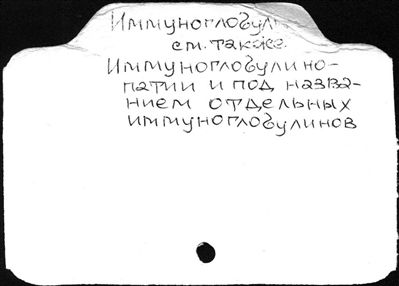 Иммуноглобули
см. также
Иммуноглобулино-
патии и под назва-
нием отдельных
иммуноглобулинов